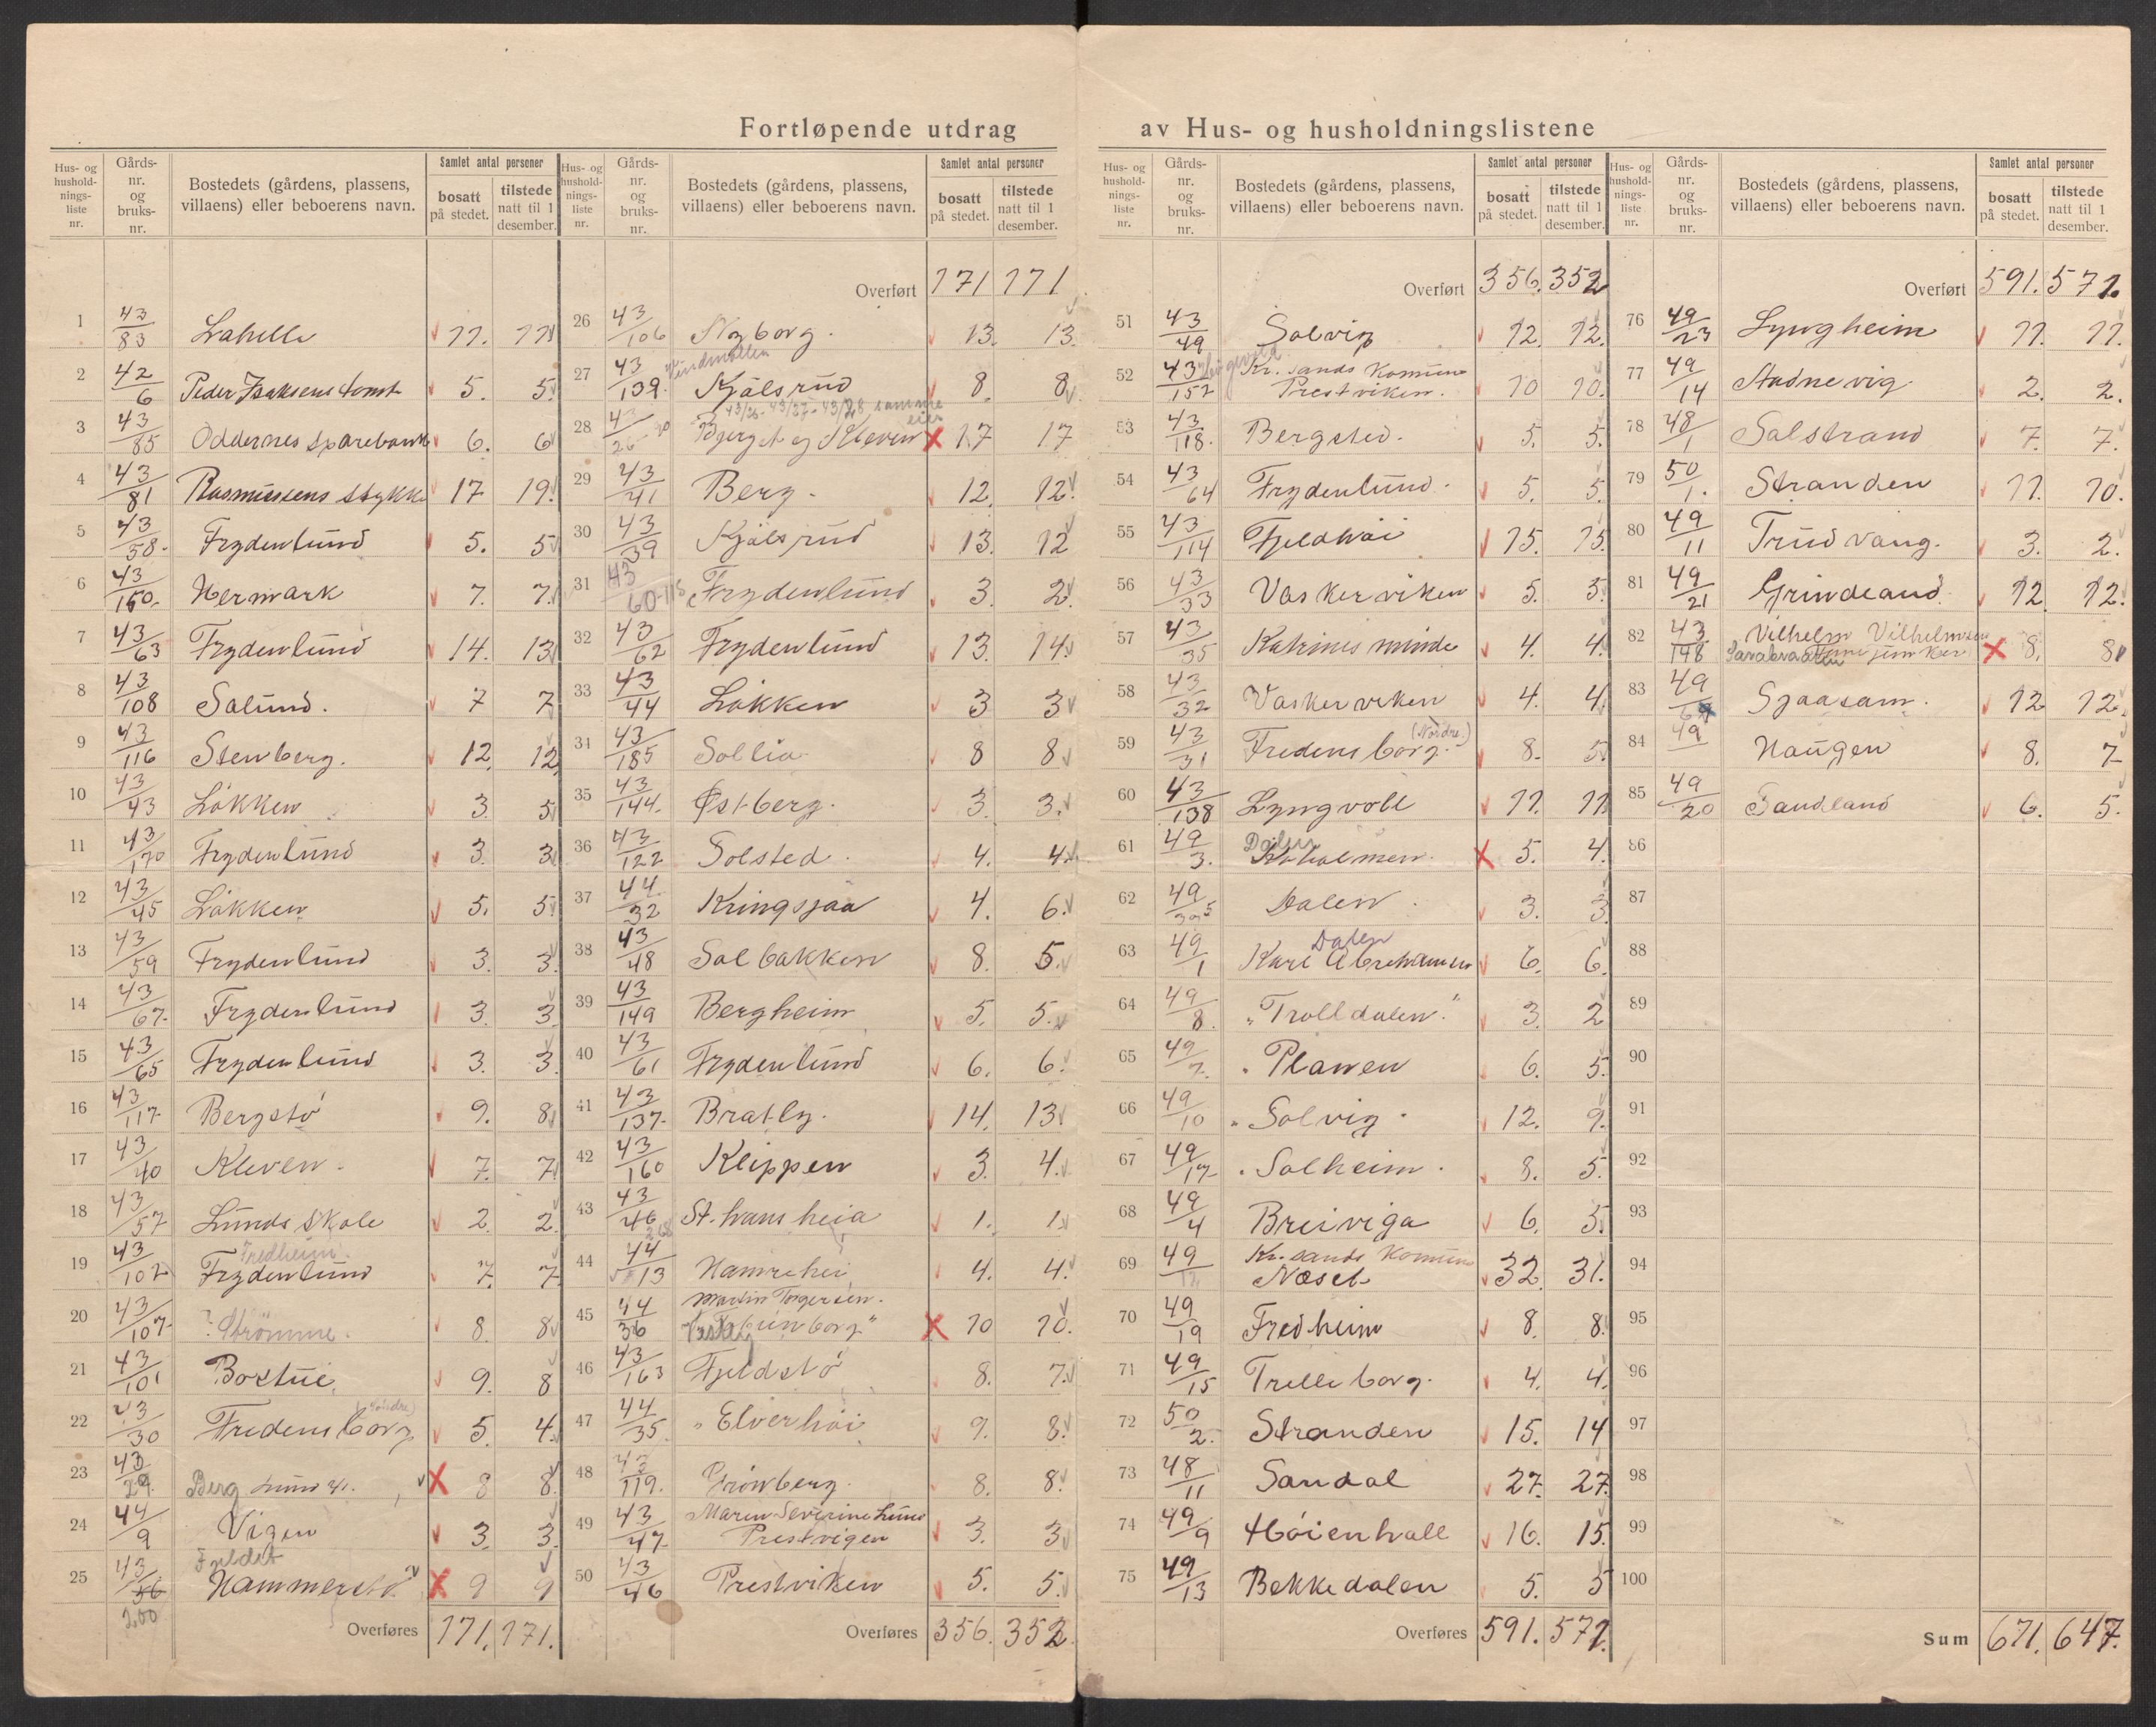 Fortløpende utdrag av Hus- og husholdningslistene
Hus- og husholdningsliste nr. | Gårdsnr. og bruksnr. | Bostedets (gårdens, plassens, villaens) eller beboerens navn. | Samlet antal personer | bosatt på stedet. | tilstede natt til 1 desember.
1 43/83 Lahelle 11. 11
2 42/6 Peder Isaksens tomt 5. 5
3 43/85 Oddernes sparebank 6. 6
4 43/81 Rasmussens stykke 17 19.
5 43/58. Frydenlund 5. 5
6 43/150. Hermark 7. 7.
7 43/63 Frydenlund 14. 13
8 43/108 Solund. 7 7
9 43/116 Stenberg. 12. 12
10 43/43 Løkken 3. 5
11 43/170 Frydenlund 3. 3
12 43/45 Løkken 5. 5
13 43/59 Frydenlund 3. 3.
14 43/67. Frydenlund 3. 3.
15 43/65 Frydenlund 3. 3.
16 43/117. Bergstø 9. 8
17 43/40 Kleven. 7. 7
18 43/57 Lunds skole 2. 2.
19 43/102 Fredheim. Frydenlund 7. 7
20 43/107. ? Strømme. 8. 8
21 43/101 Bostue. 9. 8
22 43/30 Fredensborg (Søndre) 5 4.
23 43/29. Berg Lund 41. X 8 8.
24 44/9 Vigen 3. 3.
25 43/56 200 Fjeldet Hammerstø X 9 9
Overføres 171. 171.
Overført 171 171
26 43/106 Nyborg. 13. 13.
27 43/139. Vindmøllen Kjålsrud 8. 8
28 43/26 43/26-43/37-43/28 samme eier Bjerget og Kleven X 17 17
29 43/41 Berg. 12. 12.
30 43/39 Kjålsrud 13. 12
31 43/60-115 Frydenlund 3. 2.
32 43/62 Frydenlund 13. 14.
33 43/44 Løkken 3 3
31 43/185 Sollia. 8 8
35 43/144. Østberg. 3. 3.
36 43/122 Solsted. 4. 4.
37 44/32 Kringsjaa 4. 6.
38 43/48 Solbakken 8. 5.
39 43/149 Bergheim 5. 5.
40 43/61 Frydenlund 6. 6.
41 43/137. Bratly. 14. 13
42 43/160 Klippen 3. 4.
43 43/46 St. hans heia 1. 1.
44 44/13 Hamrehei 4. 4.
45 44/36 Martin Torgersen. X 10 10.
46 43/163 Fjeldstø 8. 7.
47 44/35. " Elverhøi 9. 8.
48 43/119. Grønberg. 8. 8.
49 43/47. Maren Severine Lund Prestvigen 3. 3
50 43/46 Prestviken 5. 5.
Overføres 356. 352.
Overført 356. 352
51 43/49 Solvig 12. 12.
52 43/152 Kr. sands Komune Prestviken. 10 10.
53 43/118. Bergsted. 5. 5.
54 43/64 Frydenlund. 5. 5.
55 43/114 Fjeldhøi 15. 15.
56 43/33 Vaskerviken 5. 5.
57 43/35 Katrines minde 4. 4.
58 43/32 Vaskerviken 4. 4.
59 43/31 Fredensborg. (Nordre.) 8. 5.
60 43/138 Lyngvoll 11. 11
61 49/3. Dalen X 5. 4.
62 49/ Dalen. 3. 3.
63 49/1 Dalen Kari Abrahamsen 6. 6.
64 49/8. "Trolldalen." 3. 2
65 49/7. " Planen 6. 5.
66 49/10 " Solvig. 12. 9.
67 49/17. " Solheim. 8. 5.
68 49/4 Breiviga 6. 5.
69 49/12 Kr. sands Komune Næset 32. 31.
70 49/19 Fredheim 8. 8.
71 49/15 Trelleborg. 4. 4.
72 50/2. Stranden 15. 14
73 48/11 Sandal 27. 27.
74 49/9 Høienhall 16. 15.
75 49/13 Bekkedalen 5. 5
Overføres 591. 571.
Overført 591. 571.
76 49/23 Lyngheim 11. 11.
77 49/14 Stadnevig 2. 2.
78 48/1 Solstrand 7. 7.
79 50/1. Stranden 11. 10.
80 49/11 Trudvang. 3. 2.
81 49/21 Grindland 12. 12.
82 43/148 Vilhelm Vilhelmsen X 8. 8
83 49/ Sjaasam. 12 12.
84 49 Haugen 8. 7
85 49/20 Sandland 6. 5.
86
87
88
89
90
91
92
93
94
95
96
97
98
99
100
Sum 671. 647.